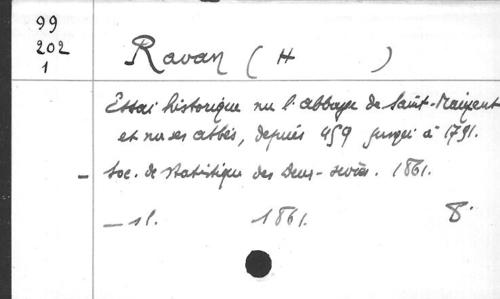 99
202
1
Ravan ( H )
Essai historique sur l'abbaye de Saint-Maixent
et sur ses abbés, depuis 459 jusqu'à 1791.
- Soc. de statistique des Deux-Sèvres. 1861.
- 1 l. 1861. 8°